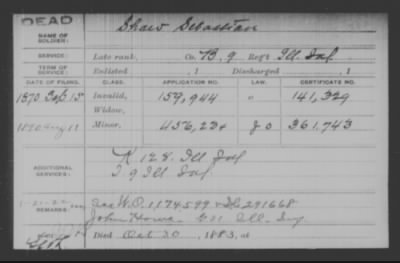 DEAD
NAME OF SOLDIER:
Shaw Sebastian
SERVICE:
Late rank, Co. B, 9 Reg't Ill. Inf.
TERM OF SERVICE:
Enlisted , 1 Discharged , 1
DATE OF FILING. CLASS. APPLICATION NO. LAW. CERTIFICATE NO.
1870 Sep. 15 Invalid, 159,944 141,329
Widow,
1890 Aug 11 Minor, 456,234 361.743
ADDITIONAL SERVICES:
K 128. Ill Inf
I 9 Ill Inf
REMARKS: See W.O. 1,174,599 291668
John Howe Ill. Inf.
Died Oct 20, 1883, at